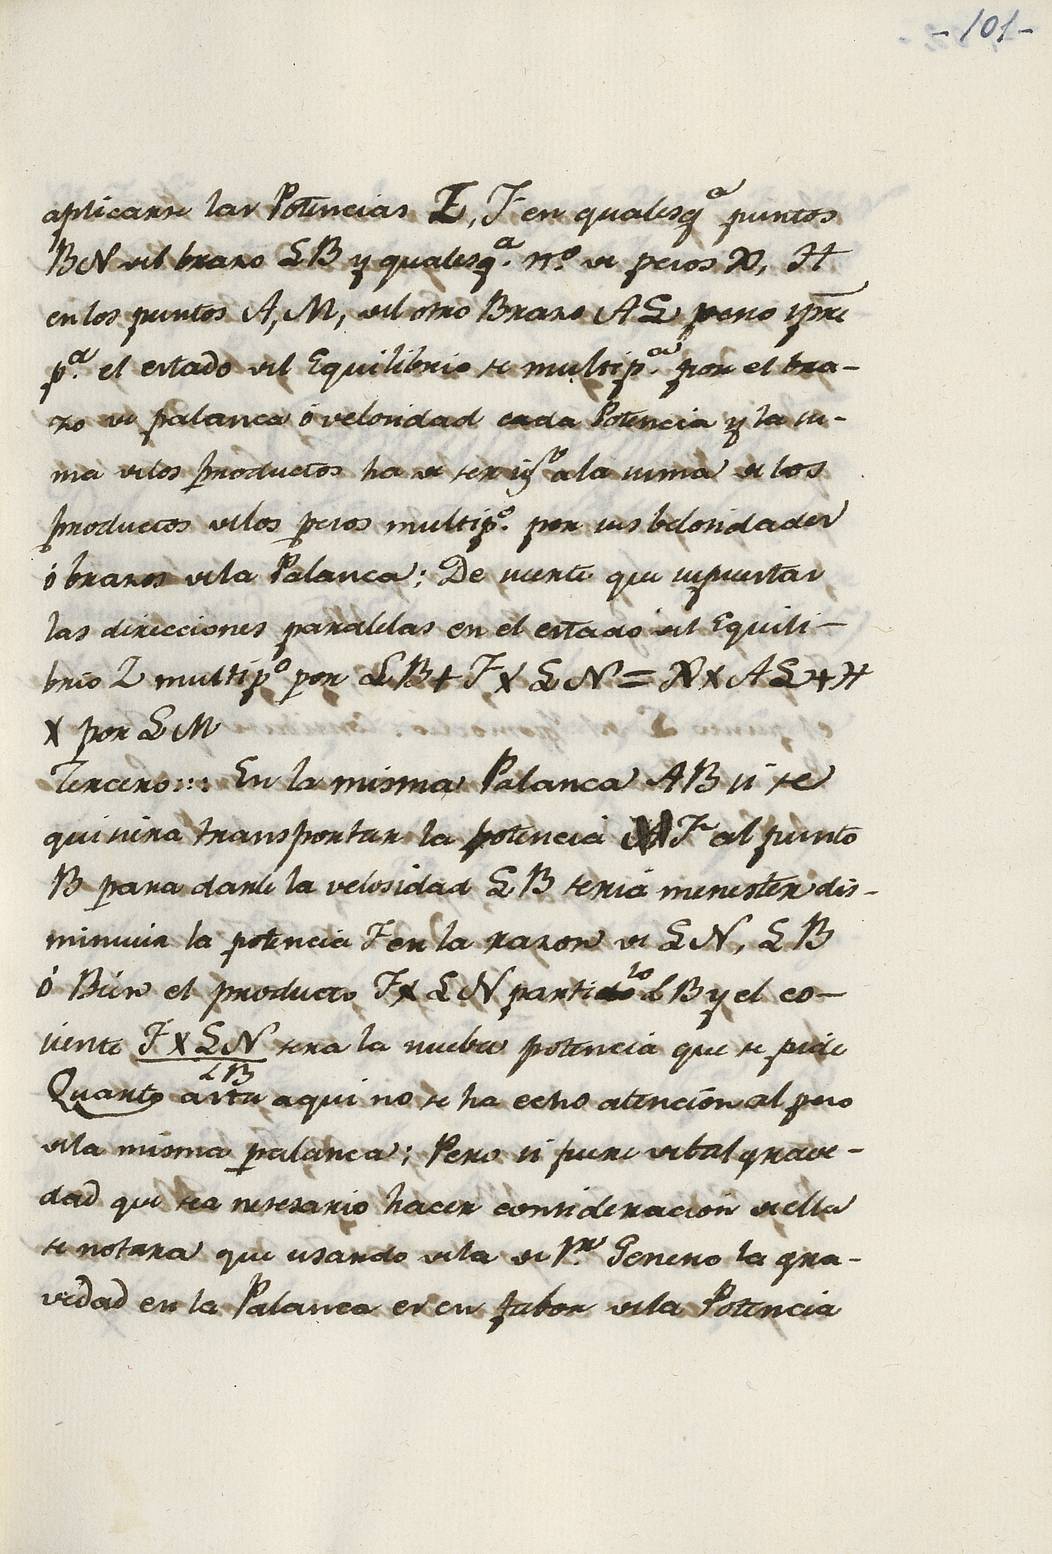 -101-
aplicarse las Potencias Z, F en qualesq.ª puntos
B N del brazo LB y qualesq.ª n.º de pesos D, H
en los puntos A, M, del otro Brazo AL pero spre
p.ª el estado del Equilibrio se multip.ª por el bra-
zo de palanca ó velosidad cada Potencia y la su-
ma delos productos ha de ser ig.º a la suma de los
productos delos pesos multip.º por sus belosidades
ó brazos dela Palanca; De suerte que supuestas
las direcciones paralelas en el estado del Equili-
brio Z multip.º por LB + F x L N = D x A L + H
x por L M
Tercero::: En la misma Palanca AB si se
quisiera transportar la potencia F al punto
B para darle la velosidad LB seria menester dis-
minuir la potencia F en la razon de LN, LB
ó Bien el producto F x L N partido LB y el co-
siente F x LN sera la nueba potencia que se pide
LB
Quanto asta aqui no se ha echo atencion al peso
dela misma palanca; Pero si fuere de tal grave-
dad que sea nesesario hacer consideracion de ella
se notara que usando dela de 1.er Genero la gra-
vedad en la Palanca es en fabor dela Potencia